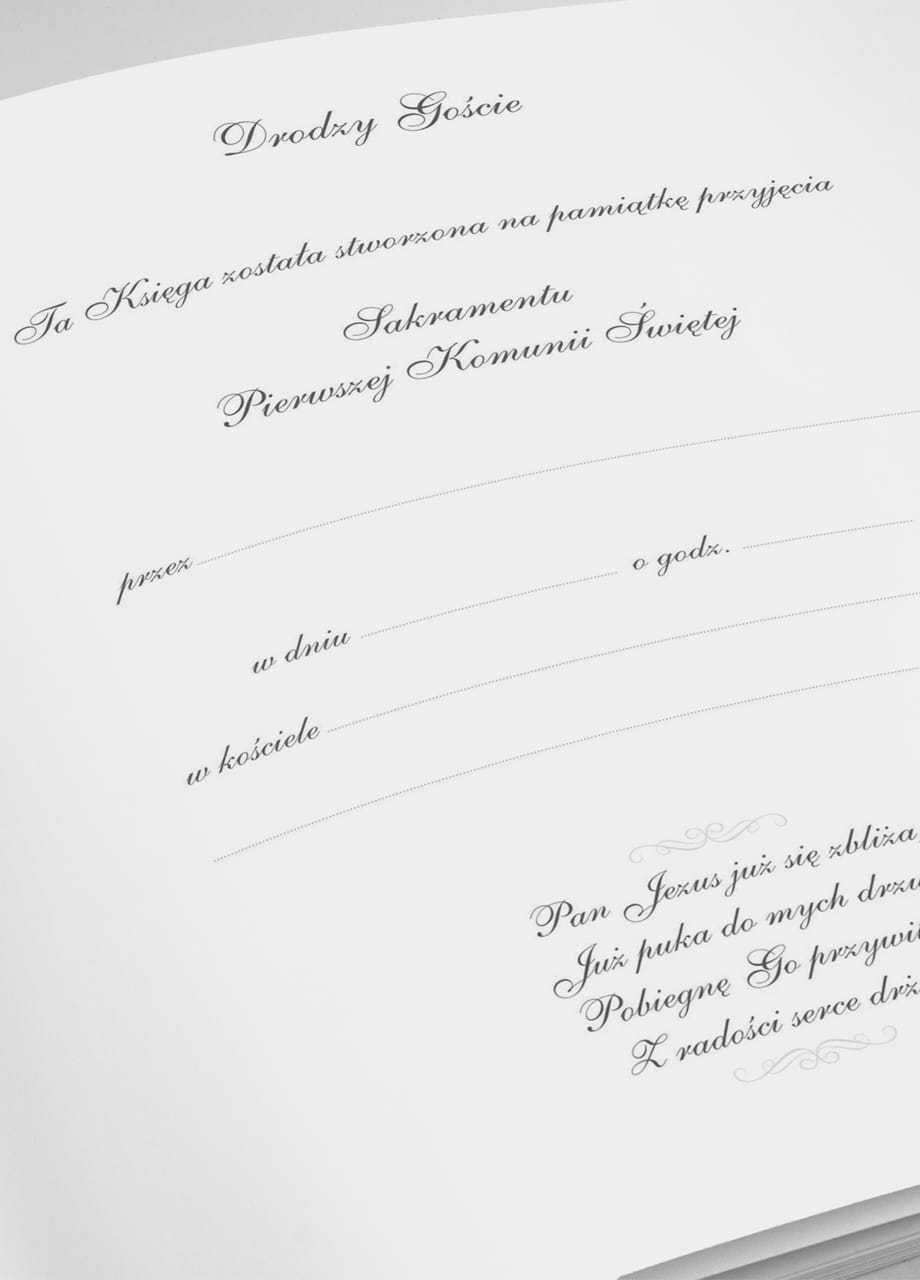 Drodzy Goście
Ta Księga została stworzona na pamiątkę przyjęcia
Sakramentu
Pierwszej Komunii Świętej
przez
w dniu o godz.
w kościele
Pan Jezus już się zbliża,
Już puka do mych
Pobiegnę Go
Z radości serce